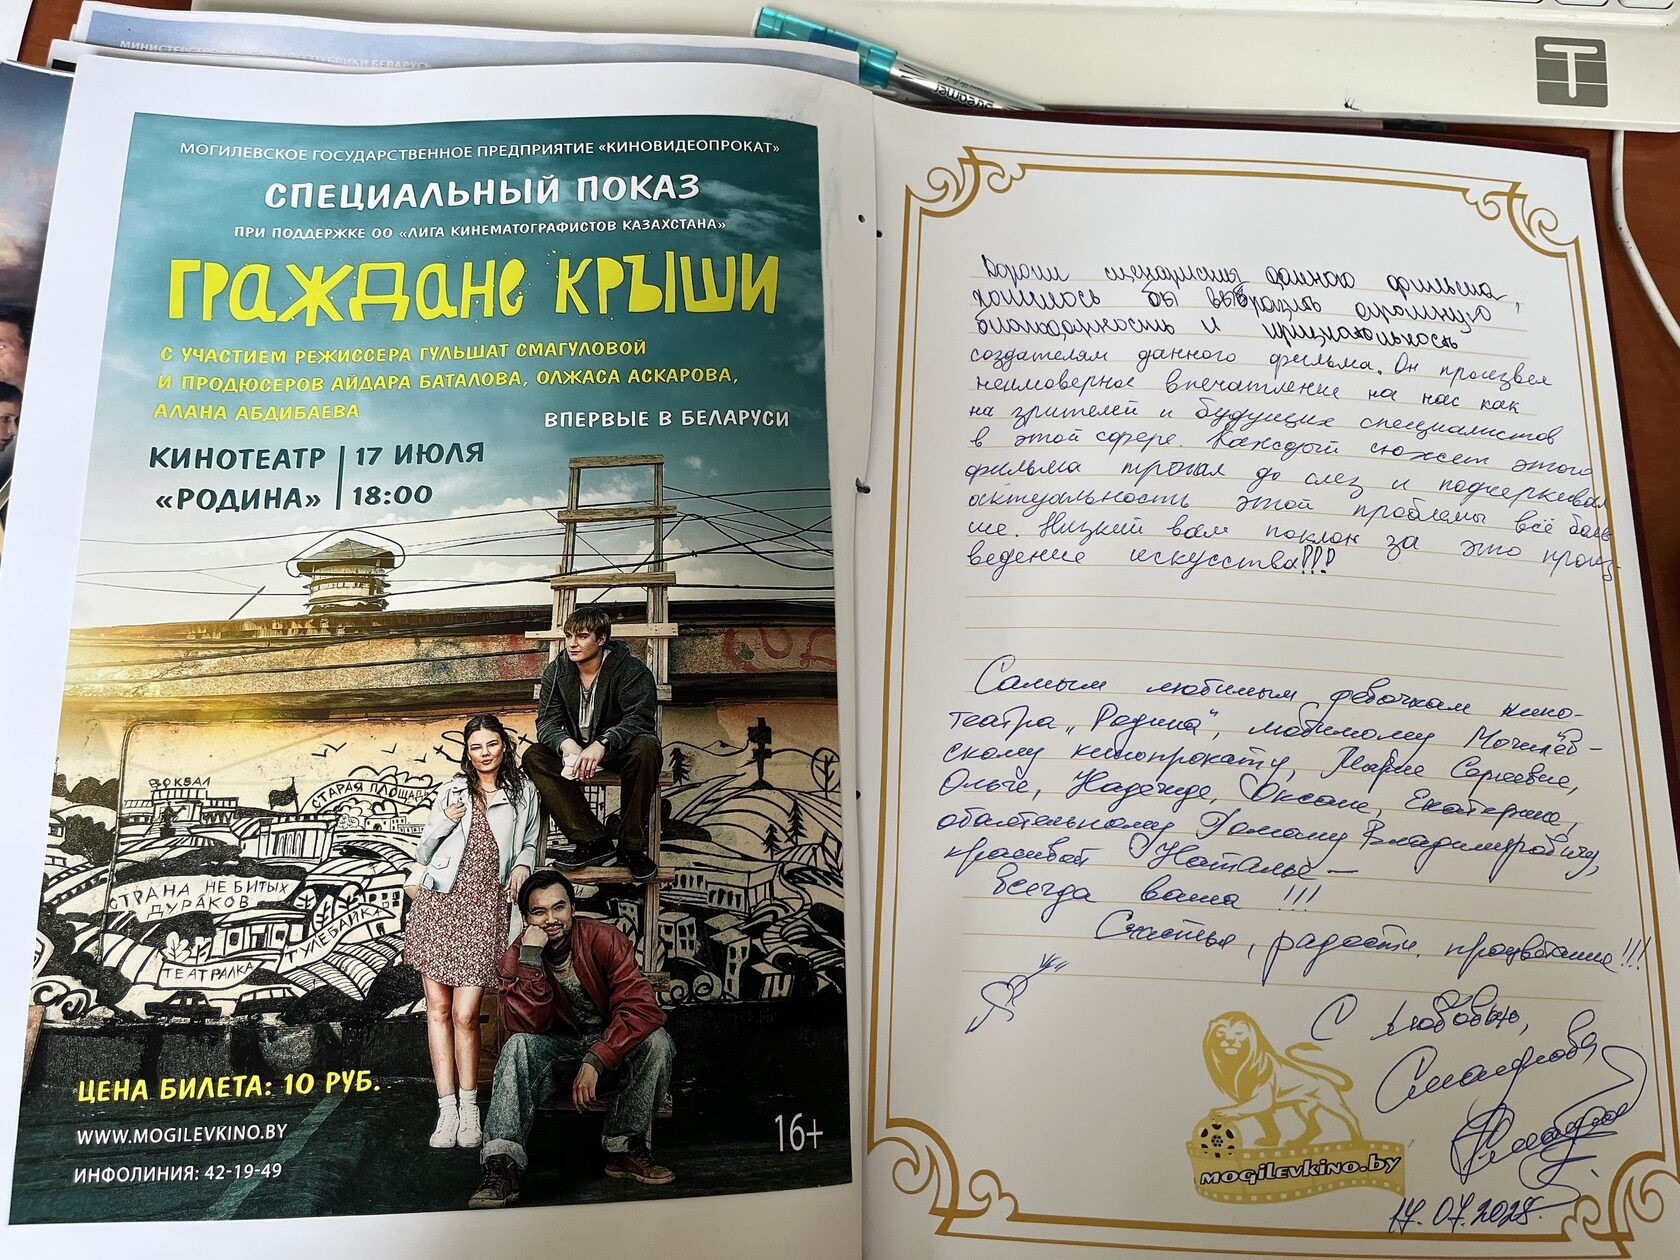 МИНИСТЕРСТВО
РЕСПУБЛИКИ БЕЛАРУСЬ
Streamer
T
МОГИЛЕВСКОЕ ГОСУДАРСТВЕННОЕ ПРЕДПРИЯТИЕ «КИНОВИДЕОПРОКАТ»
СПЕЦИАЛЬНЫЙ ПОКАЗ
ПРИ ПОДДЕРЖКЕ ОО «ЛИГА КИНЕМАТОГРАФИСТОВ КАЗАХСТАНА»
ГРАЖДАНЕ КРЫШИ
С УЧАСТИЕМ РЕЖИССЕРА ГУЛЬШАТ СМАГУЛОВОЙ
И ПРОДЮСЕРОВ АЙДАРА БАТАЛОВА, ОЛЖАСА АСКАРОВА,
АЛАНА АБДИБАЕВА
ВПЕРВЫЕ В БЕЛАРУСИ
КИНОТЕАТР
«РОДИНА»
17 ИЮЛЯ
18:00
ВОКЗАЛ
СТАРАЯ ПЛОЩАДЬ
СТРАНА НЕБИТЫХ
ДУРАКОВ
ТУЛЕБАЙКА
ТЕАТРАЛКА
ЦЕНА БИЛЕТА: 10 РУБ.
WWW.MOGILEVKINO.BY
ИНФОЛИНИЯ: 42-19-49
16+
данного фильма,
хотелось бы выразить огромную
благодарность и признательность
создателям данного фильма. Он произвёл
неимоверное впечатление на нас как
на зрителей и будущих специалистов
в этой сфере. Каждый сюжет этого
фильма трогал до слез и подчеркивал
актуальность этой проблемы всё боль
ше. Низкий вам поклон за это произ-
ведение искусства!!!
Самым любимым девочкам кино-
театра „Родина", любимому Могилёв-
скому кинопрокату, Марие Сергеевне,
Ольге, Надежде, Оксане, Екатерине,
обаятельному Роману Владимировичу,
красивой Наталье —
всегда ваша !!!
Счастья, радости, процветания!!!
С любовью,
Смагулова
MOGILEVKINO.BY
17.07.2025.